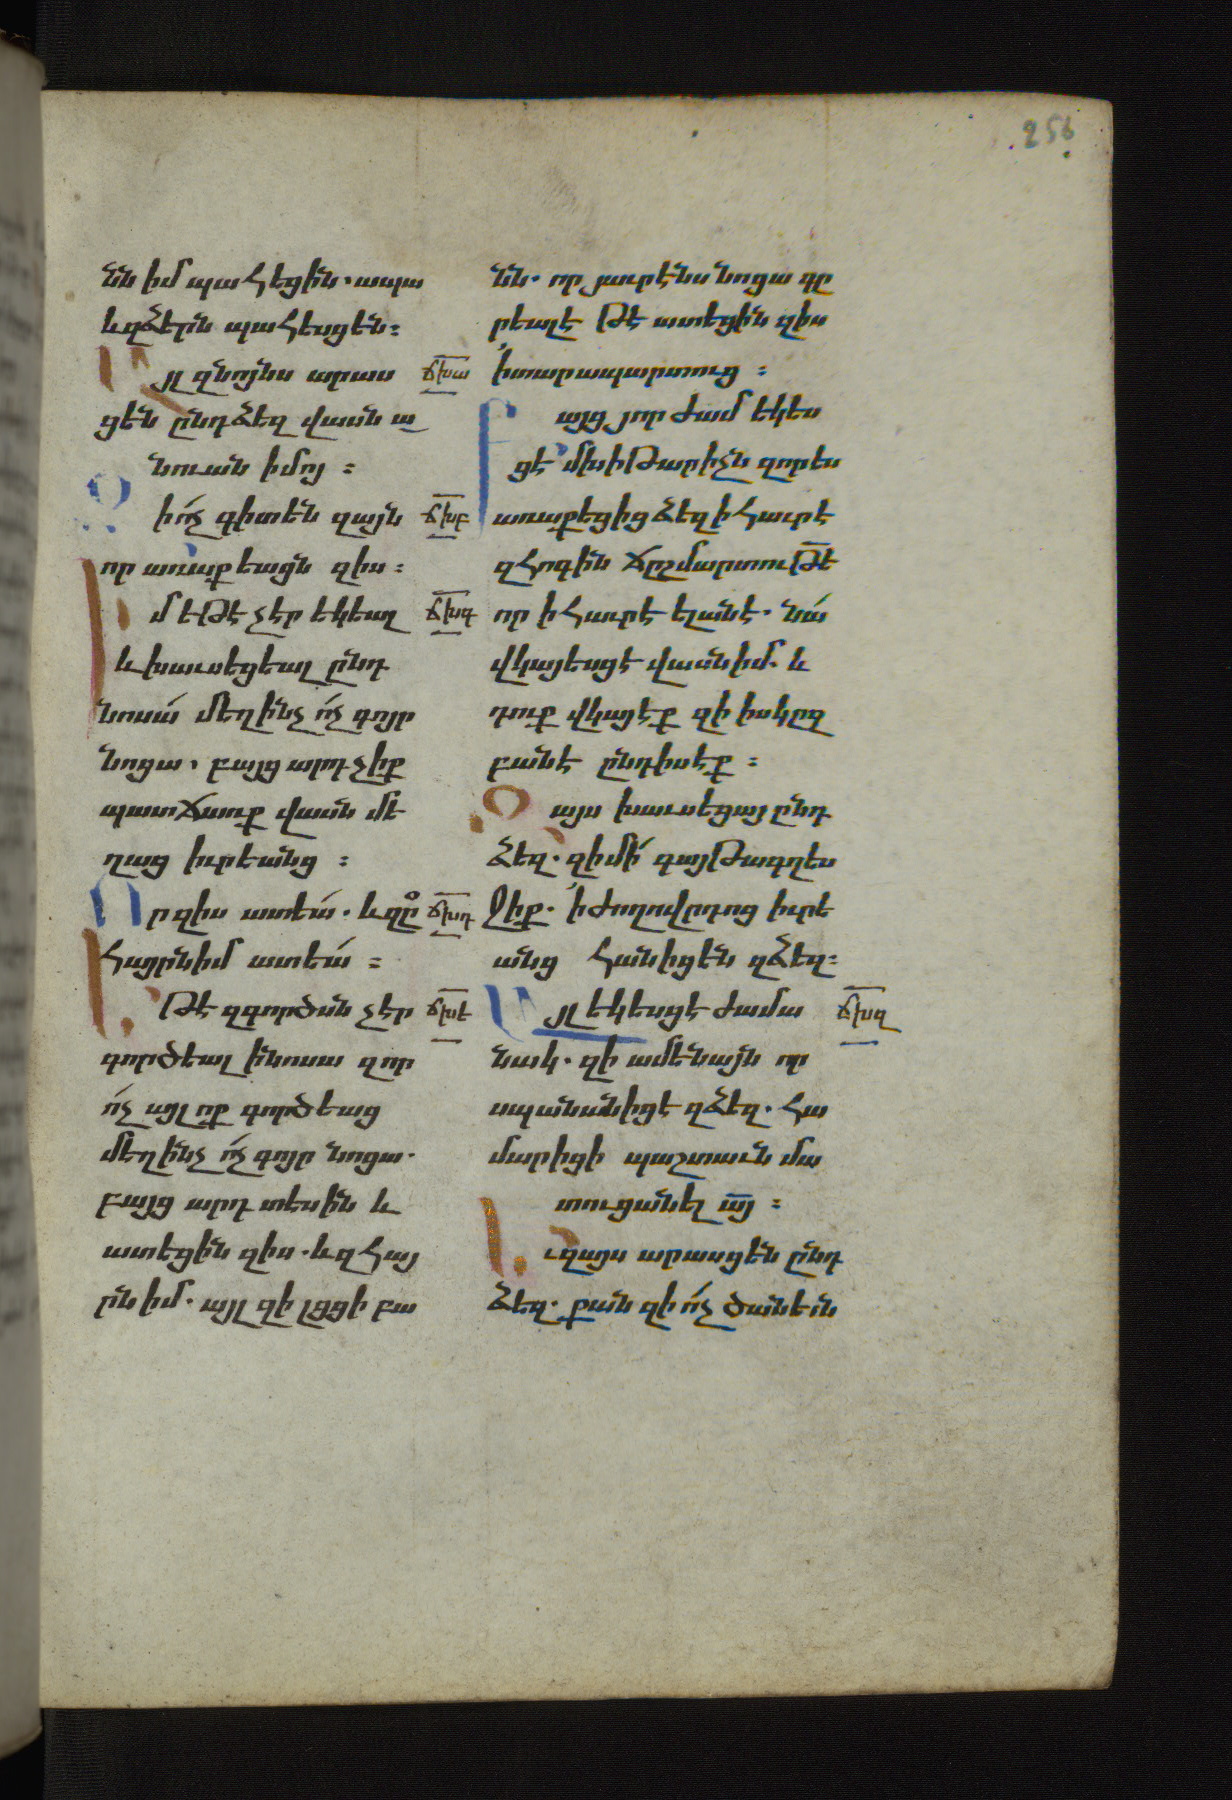 256
նն իմ պահեցին. ապա
և զձերն պահեսցեն։
Այլ զնոյնս արաս
ճխա
ցեն ընդ ձեզ վասն ա
նուան իմոյ։
Զի ո՛չ գիտեն զայն
ճխբ
որ առաքեացն զիս։
Իմ եթէ չէր եկեալ
ճխգ
և խաւսեցեալ ընդ
նոսա՛ մեղ ինչ ո՛չ գոյր
նոցա. բայց արդ չիք
պատճառք վասն մե
ղաց իւրեանց։
Որ զիս ատեա՛. և զը
ճխդ
հայրն իմ ատեա՛։
Եթէ զգործսն չէր
ճխե
գործեալ ի նոսա զոր
ո՛չ այլ ոք գործեաց
մեղ ինչ ո՛չ գոյր նոցա.
բայց արդ տեսին և
ատեցին զիս. և զհայ
րն իմ. այլ զի լցցի բա
նն. որ յաւրէնս նոցա գր
րեալ է թէ ատեցին զիս
ի տարապարտուց։
Բայց յորժամ եկես
ցէ մխիթարիչն զոր ես
առաքեցից ձեզ ի հաւրէ
զհոգին ճըշմարտութե
որ ի հաւրէ ելանէ. նա՛
վկայեսցէ վասն իմ. և
դուք վկայէք զի ի սկըզ
բանէ ընդ իս էք։
Զայս խաւսեցայ ընդ
ձեզ. զի մի՛ գայթագղես
ջիք. ի ժողովրդոց իւրե
անց հանիցեն զձեզ։
Այլ եկեսցէ ժամա
ճխզ
նակ. զի ամենայն որ
սպանանիցէ զձեզ. հա
մարիցի պաշտաւն մա
տուցանել այ։
Եւ զայս արասցեն ընդ
ձեզ. քանզի ո՛չ ծանեն